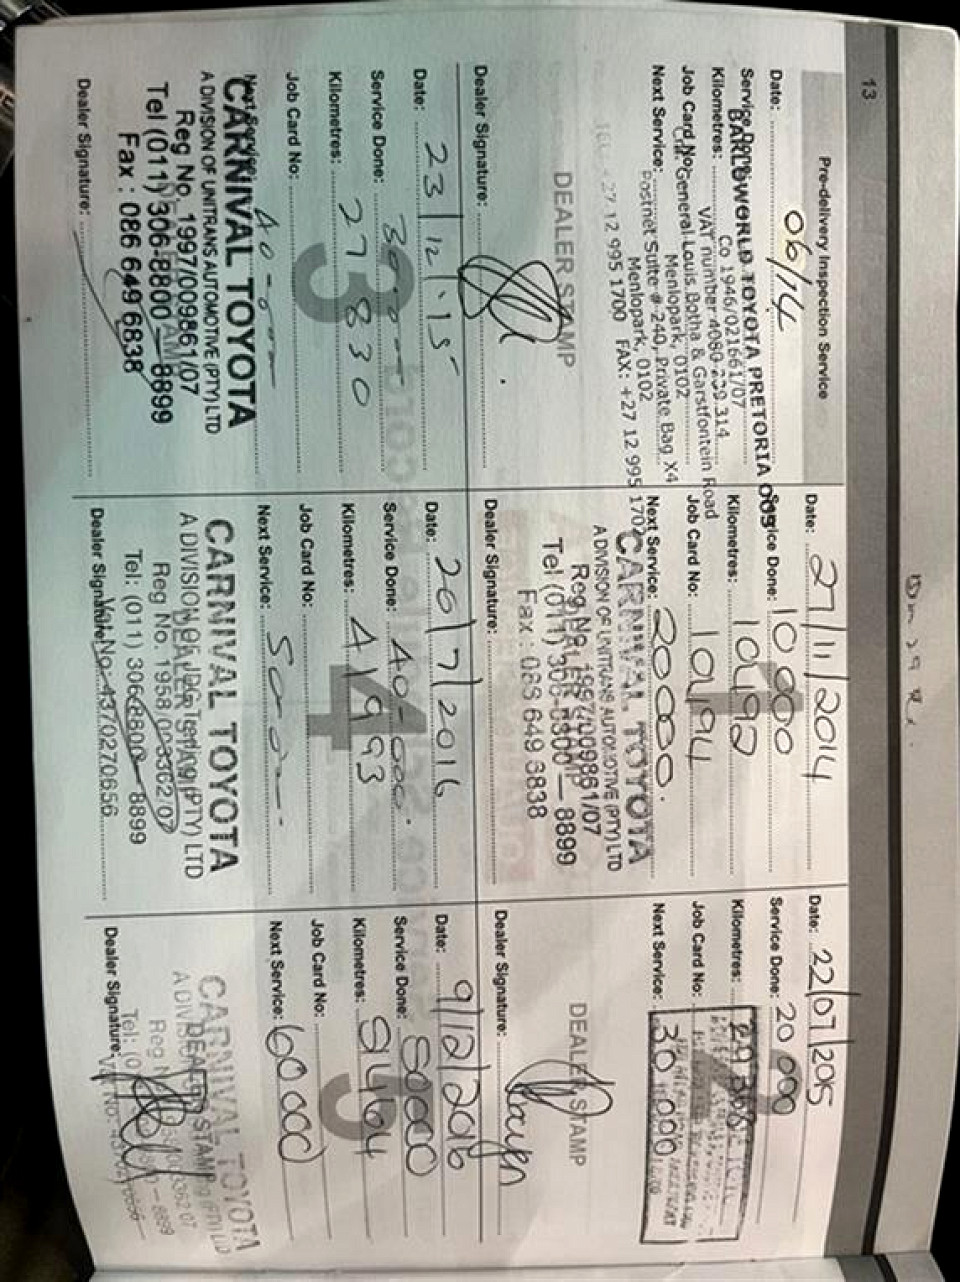 13
Pre-delivery Inspection Service
Date: 06/14
Service Done:
BARLOWORLD TOYOTA PRETORIA 009
Co 1946/021661/07
Kilometres:
VAT number 4080 239 314
Job Card No:
Cnr General Louis Botha & Garstfontein Road
Menlopark, 0102
Next Service:
Postnet Suite # 240, Private Bag X4
Menlopark, 0102
27 12 995 1700 FAX: +27 12 995 1702
DEALER STAMP
Dealer Signature:
Date: 27/11/2014
Service Done: 10 000
Kilometres: 10492
Job Card No: 10494
Next Service: 20000.
CARNIVAL TOYOTA
A DIVISION OF UNITRANS AUTOMOTIVE (PTY) LTD
Reg No. 1997/009861/07
Tel (011) 306-8800 – 8899
Dealer Signature:
1
Date: 22/07/2015
Service Done: 20 000
Kilometres:
Job Card No:
Next Service: 30 000
DEALER STAMP
Dealer Signature:
Date: 23/12/15
Service Done:
Kilometres: 27830
Job Card No:
3
CARNIVAL TOYOTA
A DIVISION OF UNITRANS AUTOMOTIVE (PTY) LTD
Reg No. 1997/009861/07
Tel (011) 306-8800 – 8899
Fax : 086 649 6838
Dealer Signature:
Date: 20/7/2016
Service Done: 40-000.
Kilometres: 41993
Job Card No:
Next Service:
4
CARNIVAL TOYOTA
DEALER STAMP
Tel: (011) 306 8800 – 8899
Vat No: 4370270656
Dealer Signature:
Date: 9/12/2016
Service Done: 50000
Kilometres:
Job Card No:
Next Service: 60000
5
CARNIVAL TOYOTA
DEALER STAMP
Dealer Signature: